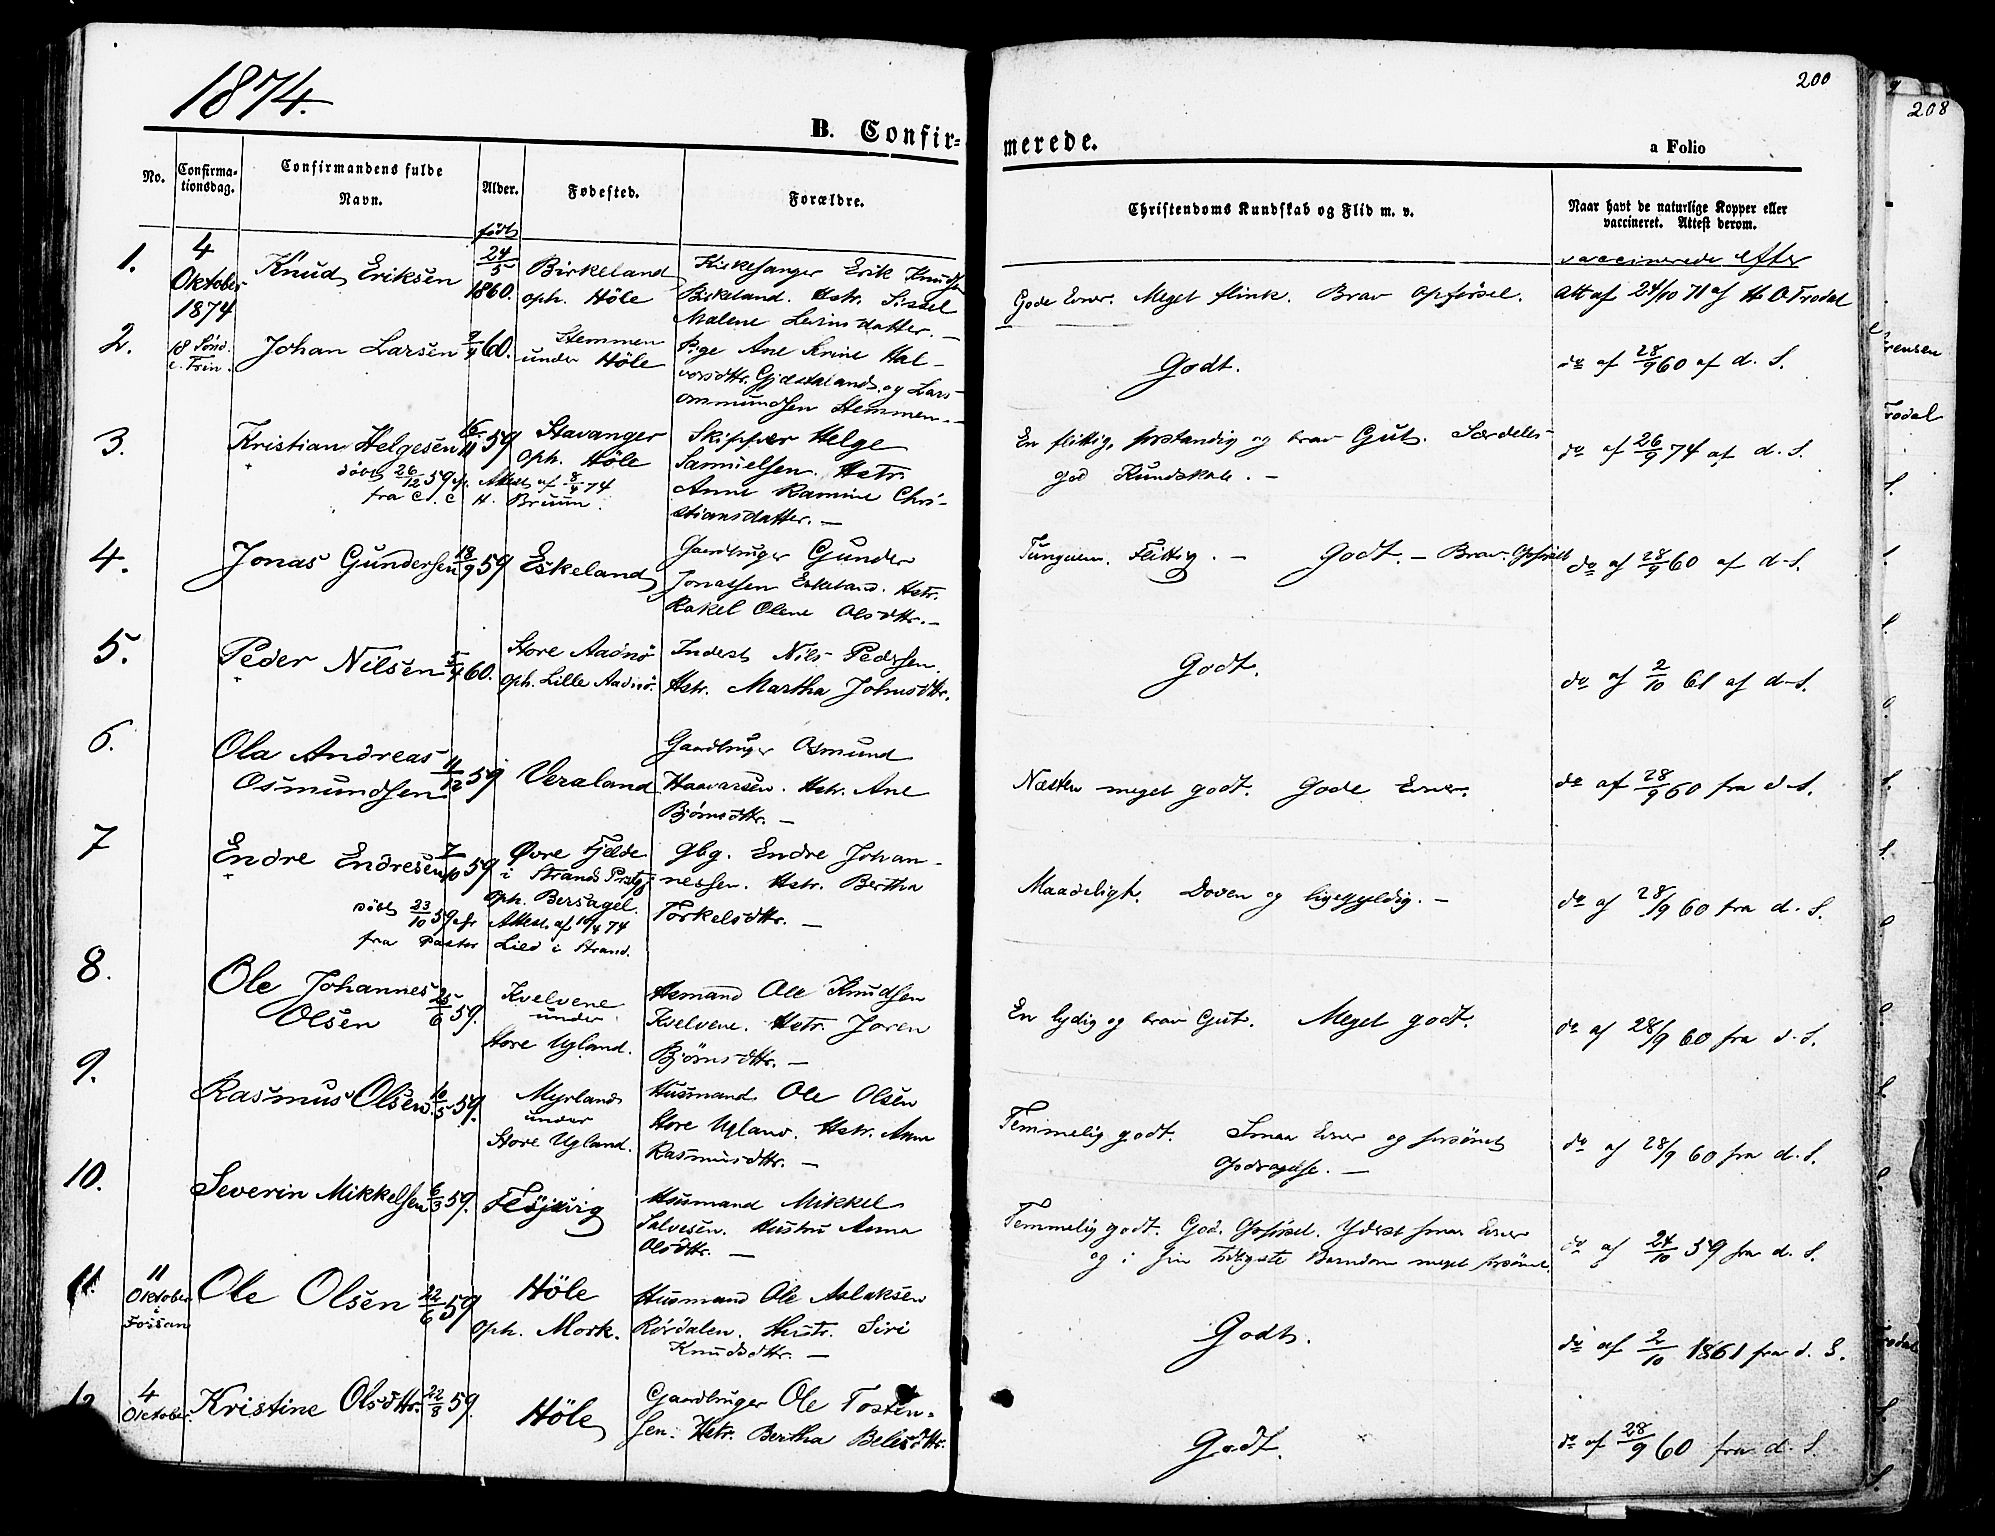 1874.
200
208
B. Confir=
merede.
a Folio
No.
Confirma-
tionsdag.
Confirmandens fulde
Navn.
Alder.
Fødested.
Forældre.
Christendoms Kundskab og Flid m. v.
Naar havt de naturlige Kopper eller
vaccineret. Attest derom.
født
vaccinerede efter
1.
4
Oktober
1874
Knud Eriksen
24/5
1860.
Birkeland
oph. Höle
Kirkesanger Erik Knudsen
Birkeland. Hstr. Sissel
Malene Levinsdatter. —
Gode Evner. Meget flink. Brav Opførsel.
Att af 24/10 71 af H O Trodal
2.
18 Sønd.
e. Trin.
Johan Larsen
9/4 60.
Stemmen
under Höle
Pige Ane Trine Hal-
vorsdttr. Gjestelands og Lars
Ommundsen Stemmen. —
Godt.
do af 28/9 60 af d. S.
3.
Kristian Helgesen
16/11 59
døbt 26/12 59 efr. Attest af 8/4 74
fra C. C H. Bruun.
Stavanger
oph. Höle
Skipper Helge
Samuelsen. Hstr.
Anne Ramine Chri-
stiansdatter. —
En flittig, forstandig og brav Gut. Særdeles
god Kundskab. —
do af 26/9 74 af d. S.
4.
Jonas Gundersen
18/9 59
Eskeland
Gaardbruger Gunder
Jonassen Eskeland. Hstr.
Rakel Olene Olsdttr. —
Tungnem. Flittig. — Godt. — Brav Opførsel
do af 28/9 60 af d. S.
5.
Peder Nilsen
5/4 60.
Store Aadnö
oph. Lille Aadnö.
Inderst Nils Pedersen.
Hstr. Martha Johnsdttr.
Godt.
do af 2/10 61 af d. S.
6.
Ola Andreas
Osmundsen
11/12 59
Veraland
Gaardbruger Osmund
Haavarsen. Hstr. Ane
Bjørnsdttr. —
Næsten meget godt. Gode Evner.
do af 28/9 60 fra d. S.
7
Endre Endresen
7/10 59
døbt 23/10 59 efr Attest. af 10/4 74
fra Pastor Lied i Strand.
Øvre Fjelde
i Strands Prstgj
oph. Bersagel.
Gbg. Endre Johan-
nessen. Hstr. Bertha
Torkelsdttr. —
Maadeligt. Doven og ligegyldig. —
do af 28/9 60 fra d. S.
8.
Ole Johannes
Olsen
25/6 59.
Kvelvene
under
Store Ugland.
Husmand Ole Knudsen
Kvelvene. Hstr. Joren
Bjørnsdttr. —
En lydig og brav Gut. Meget godt.
do af 28/9 60 fra d. S.
9.
Rasmus Olsen.
16/5 59.
Myrland
under
Store Ugland.
Husmand Ole Olsen
Store Ugland. Hstr. Anna
Rasmusdttr. —
Temmelig godt. Smaa Evner og forsömt
Opdragelse. —
do af 28/9 60 fra d. S.
10.
Severin Mikkelsen
6/3 59.
Flöjevig
Husmand Mikkel
Salvesen. Hustru Anna
Olsdttr. —
Temmelig godt. God Opförsel. Yderst smaa Evner
og i sin tidligste Barndom meget forsömt.
do af 24/10 59 fra d. S.
11.
11
Oktober
i
Fossan
Ole Olsen
22/6 59
Höle
oph. Mork.
Husmand Ole Aslaksen
Rördalen. Hustr. Siri
Knudsdttr. —
Godt.
do af 2/10 1861 fra d. S.
12
4
Oktober.
Kristine Olsdttr.
22/8 59.
Höle
Gaardbruger Ole Tosten-
sen. Hstr. Bertha Belesdttr.
Godt.
do af 28/9 60 fra d. S.